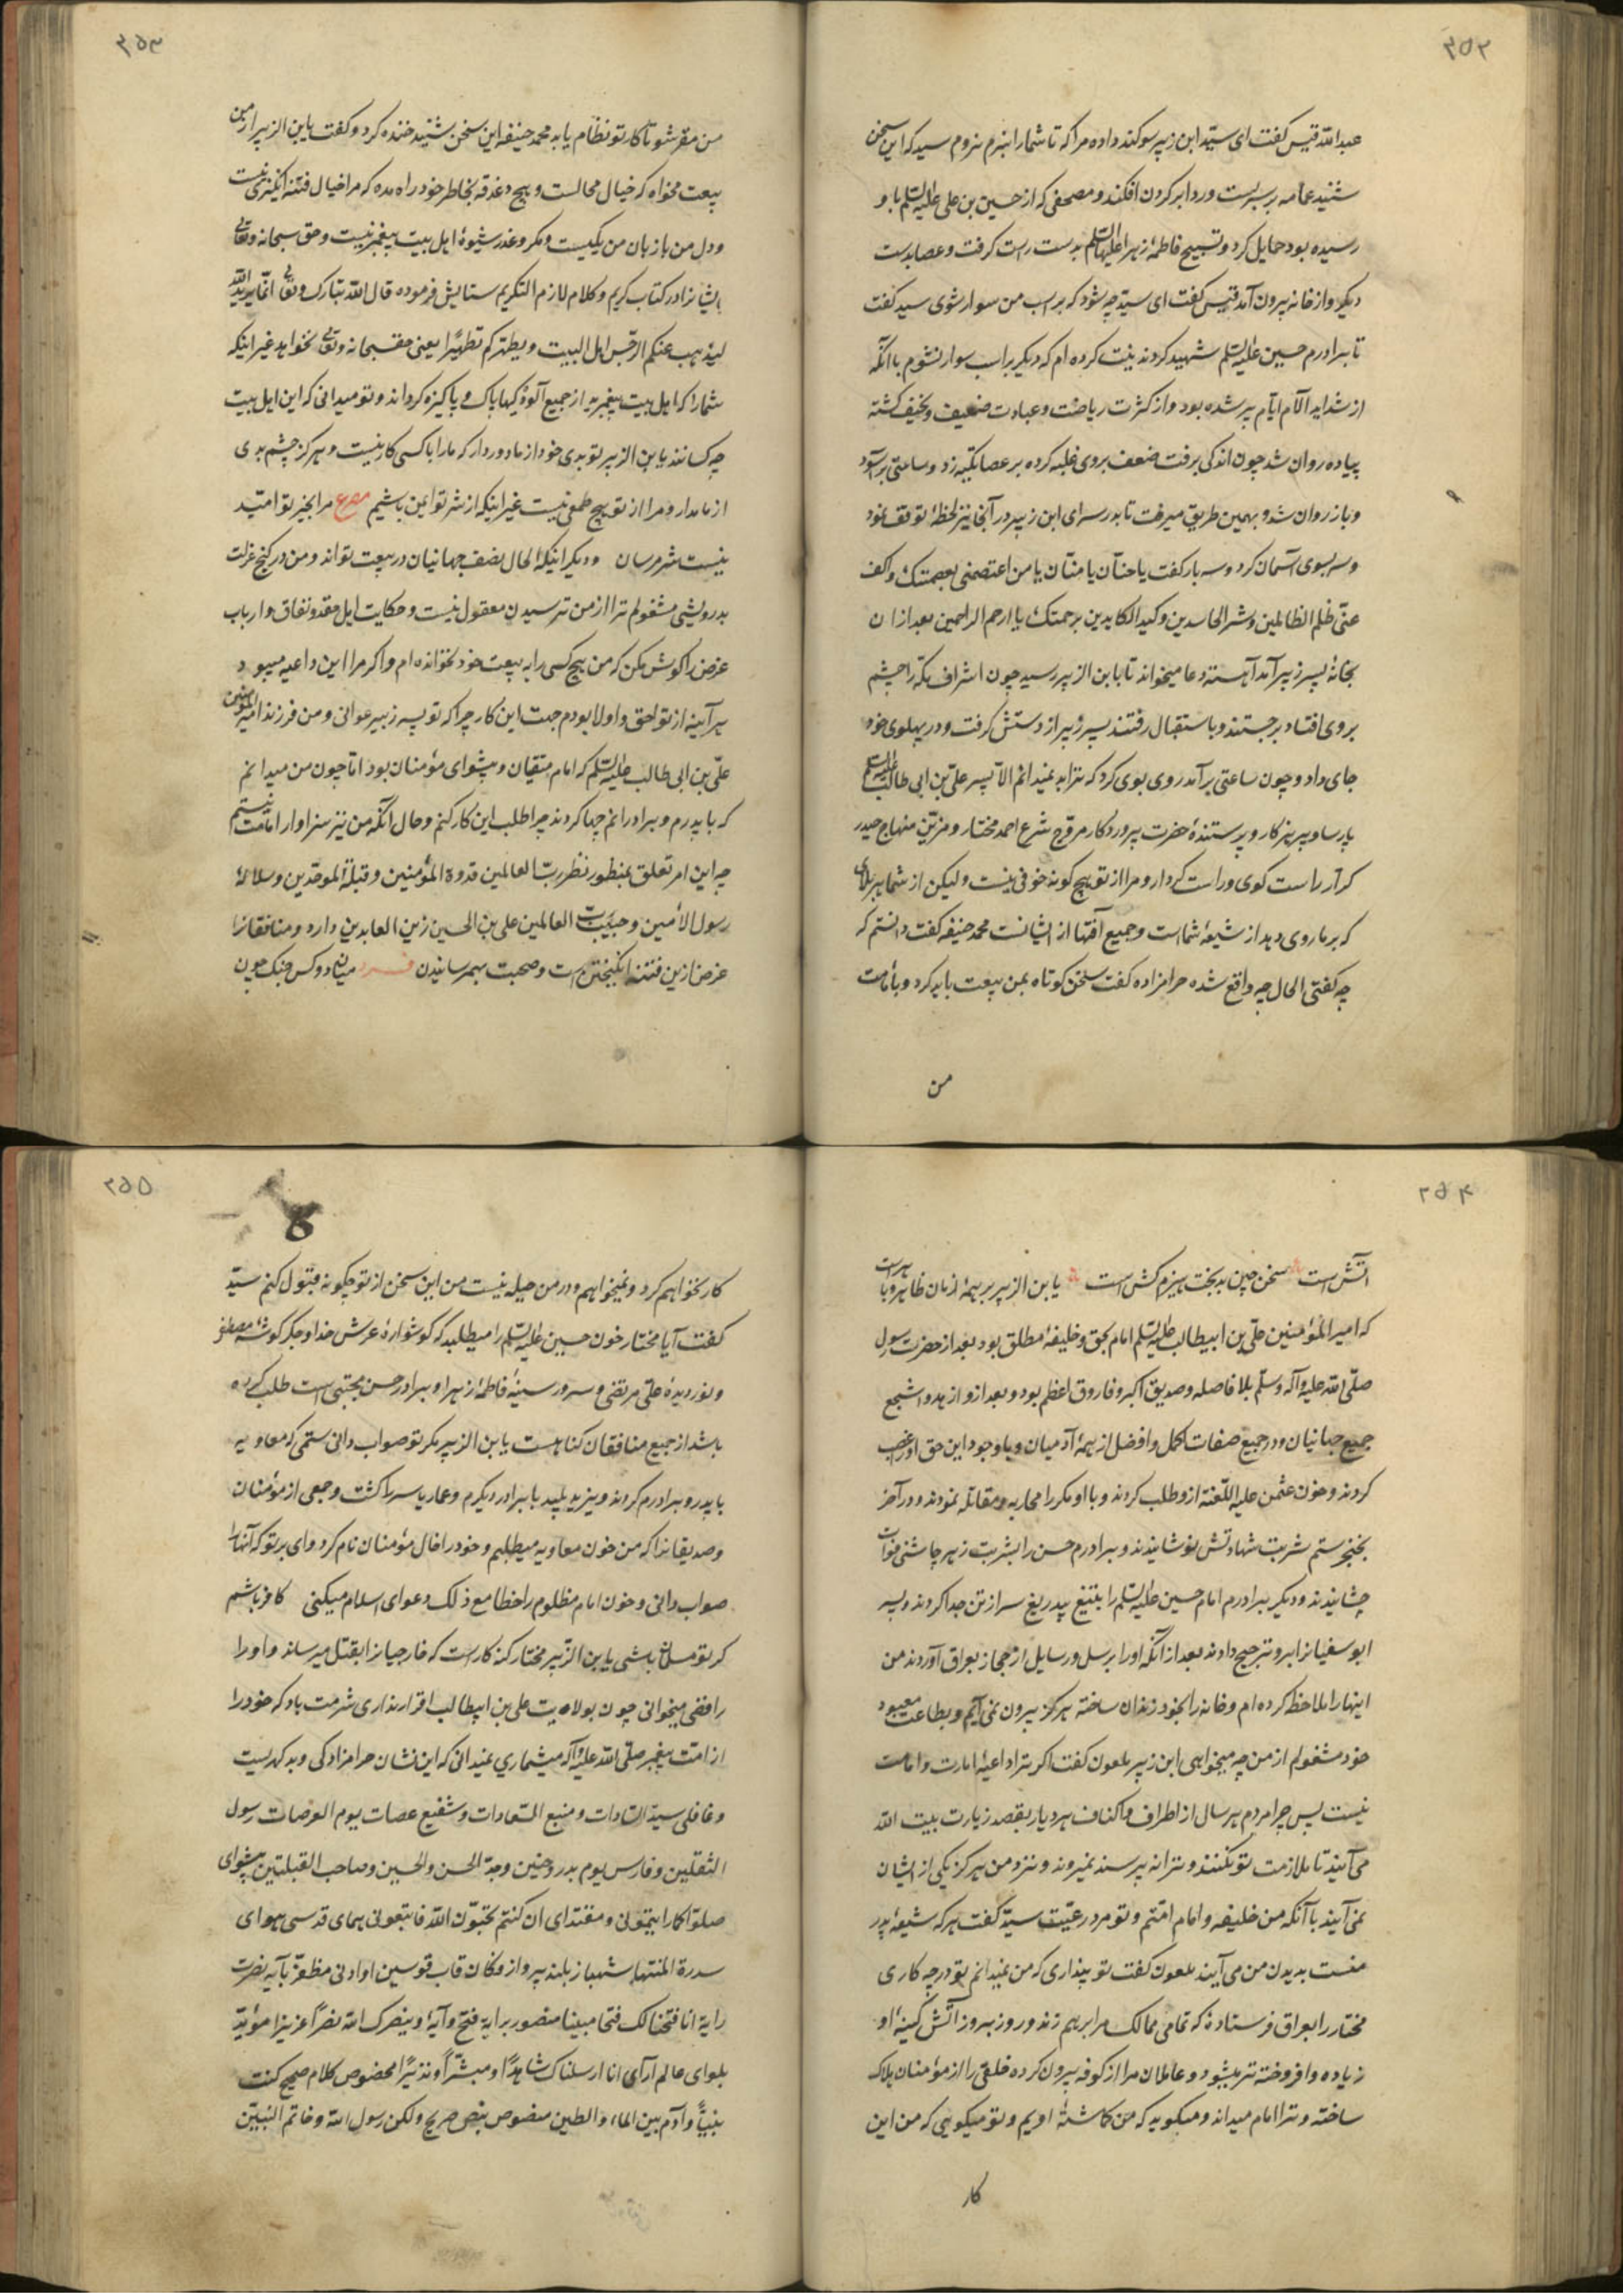 ۳۵۲
عبدالله قیس کفت ای سیّد ابن زبیر سوکند داده مرا که تا شمارا نبرم نروم سید که این سخن
شنید عمامه بر سر بست و ردا بر کردن افکند و مصحفی که از حسین بن علی علیه السّلم باو
رسیده بود حمایل کرد و تسبیح فاطمهٔ زهرا علیها السّلم بدست راست کرفت و عصا بدست
دیکر و از خانه بیرون آمد قیس کفت ای سیّد چه شود که بر اسب من سوار شوی سید کفت
تا برادرم حسین علیه السّلم شهید کردند نیت کرده ام که دیکر بر اسب سوار نشوم با آنکه
از شداید آلام ایّام پیر شده بود و از کثرت ریاضت و عبادت ضعیف و نحیف کشته
پیاده روان شد چون اندکی برفت ضعف بروی غلبه کرده بر عصا تکیه زد و ساعتی بر آسود
و باز روان شد و بهمین طریق میرفت تا بدر سرای ابن زبیر در آنجا نیز لحظهٔ توقف نمود
و سر بسوی آسمان کرد و سه بار کفت یا حنّان یا منّان یا من اعتصمنی بعصمتک و اکف
عنّی ظلم الظالمین و شر الحاسدین و کید الکایدین برحمتک یا ارحم الراحمین بعد از ان
بخانهٔ پسر زبیر آمد آهسته دعا میخواند تا بابن الزبیر رسید چون اشراف مکّه را چشم
بروی افتاد برجستند و باستقبال رفتند پسر زبیر از دستش کرفت و در پهلوی خود
جای داد و چون ساعتی برآمد روی بوی کرد که ترا به نمیدانم الّا پسر علی بن ابی طالب علیه السلم
پارسا و پرهیزکار و پرستندهٔ حضرت پروردکار مروّج شرع احمد مختار و مزیّن منهاج حیدر
کرّار راست کوی و راست کردار و مرا از تو هیچ کونه خوفی نیست ولیکن از شما هر بلای
که بر ما روی دهد از شیعهٔ شماست و جمیع آفتها از ایشانست محمد حنیفه کفت دانستم که
چه کفتی الحال چه واقع شده حرامزاده کفت سخن کوتاه بمن بیعت باید کرد و بامامت
من
۳۵۳
من مقر شو تا کار تو نظام یابد محمد حنیفه این سخن شنید خنده کرد و کفت یابن الزبیر از من
بیعت مخواه که خیال محالست و هیچ دغدقه بخاطر خود راه مده که مرا خیال فتنه انکیزی نیست
و دل من با زبان من یکیست و مکر و غدر شیوهٔ اهل بیت پیغمبر نیست و حق سبحانه و تعالی
ایشانرا در کتاب کریم و کلام لازم التکریم ستایش فرموده قال الله تبارک و تعالی انّما یرید الله
لیذهب عنکم الرّجس اهل البیت و یطهّرکم تطهیرًا یعنی حق سبحانه و تعالی نخواهد غیر اینکه
شمارا که اهل بیت پیغمبرید از جمیع آلودکیها پاک و پاکیزه کرداند و تو میدانی که این اهل بیت
چه کسانند یابن الزبیر تو بدی خود از ما دور دار که مارا با کسی کار نیست و هرکز چشم بدی
از ما مدار و مرا از تو هیچ طمعی نیست غیر اینکه از شر تو ایمن باشیم مصرع مرا بخیر تو امّید
نیست شر مرسان و دیکر اینکه الحال نصف جهانیان در بیعت تواند و من در کنج عزلت
بدرویشی مشغولم ترا از من ترسیدن معقول نیست و حکایت اهل حقد و نفاق و ارباب
غرض را کوش مکن که من هیچ کسی را به بیعت خود نخوانده ام و اکر مرا این داعیه میبود
هر آینه از تو احق و اولا بودم جهت این کار چرا که تو پسر زبیر عوانی و من فرزند امیرالمؤمنین
علیّ بن ابی طالب علیه السّلم که امام متقیان و پیشوای مؤمنان بود امّا چون من میدانم
که با پدرم و برادرانم چها کردند چرا طلب این کار کنم و حال آنکه من نیز سزاوار امامت نیستم
چه این امر تعلق بمنظور نظر ربّ العالمین قدوة المؤمنین و قبلة الموحّدین و سلالهٔ
رسول الامین و حبیب ربّ العالمین علی بن الحسین زین العابدین دارد و منافقانرا
غرض ازین فتنه انکیختن است و صحبت بهم رسانیدن فرد میان دو کس جنک چون
۳۵۴
آتش است سخن چین بدبخت هیزم کش است یابن الزبیر بر همهٔ ازمان ظاهر و باهر است
که امیرالمؤمنین علیّ بن ابیطالب علیه السّلم امام بحق و خلیفهٔ مطلق بود بعد از حضرت رسول
صلّی الله علیه و آله و سلّم بلا فاصله و صدیق اکبر و فاروق اعظم بود و بعد ازو ازهد و اشجع
جمیع جهانیان و در جمیع صفات اکمل و افضل از همهٔ آدمیان و باوجود این حق او غصب
کردند و خون عثمن علیه اللّعنة ازو طلب کردند و با او مکرر محاربه و مقاتله نمودند و در آخر
بخنجر ستم شربت شهادتش نوشانیدند و برادرم حسن را بشربت زهر چاشنی فوات
چشانیدند و دیکر برادرم امام حسین علیه السّلم را بتیغ بیدریغ سر از تن جدا کردند و پسر
ابو سفیانرا برو ترجیح دادند بعد از آنکه اورا برسل و رسایل از حجاز بعراق آوردند من
اینها را ملاحظه کرده ام و خانه را بخود زندان ساخته هرکز بیرون نمی آیم و بطاعت معبود
خود مشغولم از من چه میخواهی ابن زبیر ملعون کفت اکر ترا داعیهٔ امارت و امامت
نیست پس چرا مردم هر سال از اطراف و اکناف هر دیار بقصد زیارت بیت الله
می آیند تا ملازمت تو نکنند و ترا نه پرسند نمیروند و نزد من هرکز یکی از ایشان
نمی آیند با آنکه من خلیفه و امام امّتم و تو مرد رعیّت سیّد کفت هر که شیعهٔ پدر
منست بدیدن من می آیند ملعون کفت تو پنداری که من نمیدانم تو در چه کاری
مختار را بعراق فرستادهٔ که تمامی ممالک مرا برهم زند و روز بروز آتش کینهٔ او
زیاده و افروخته تر میشود و عاملان مرا از کوفه بیرون کرده خلقی را از مؤمنان هلاک
ساخته و ترا امام میداند و میکوید که من کماشتهٔ اویم و تو میکویی که من این
کار
۳۵۵
کار نخواهم کرد و نمیخواهم و در من حیله نیست من این سخن از تو چکونه قبول کنم سیّد
کفت آیا مختار خون حسین علیه السّلم را میطلبد که کوشوارهٔ عرش خدا و جکر کوشهٔ مصطفی
و نور دیدهٔ علی مرتضی و سرور سینهٔ فاطمهٔ زهرا و برادر حسن مجتبی است طلب کرده
باشد از جمیع منافقان کناهست یابن الزبیر مکر تو صواب دانی ستمی که معاویه
با پدر و برادرم کردند و یزید پلید با برادر دیکرم و عمار یاسر را کشت و جمعی از مؤمنان
و صدیقانرا که من خون معاویه میطلبم و خود را خال مؤمنان نام کرد وای بر تو که آنهارا
صواب دانی و خون امام مظلوم را خطا مع ذلک دعوای اسلام میکنی کافر باشم
کر تو مسلمان باشی یابن الزّبیر مختار کنه کارست که خارجیانرا بقتل میرساند و اورا
رافضی میخوانی چون بولایت علی بن ابیطالب اقرار نداری شرمت باد که خود را
از امّت پیغمبر صلّی الله علیه و آله میشماری نمیدانی که این نشان حرامزادکی و بد کهریست
و غافلی سیّد السّادات و منبع السّعادات و شفیع عصات یوم العرصات رسول
الثقلین و فارس یوم بدر و حنین و جدّ الحسن و الحسین و صاحب القبلتین پیشوای
صلّوا کما رایتمونی و مقتدای ان کنتم تحبّون الله فاتّبعونی همای قدسی هوای
سدرة المنتها شهباز بلند پرواز فکان قاب قوسین او ادنی مظفّر بآیهٔ نصرت
رایة انا فتحنا لک فتحا مبینا منصور برایهٔ فتح و آیهٔ و ینصرک الله نصراً عزیزا مؤیّد
بلوای عالم آرای انا ارسلناک شاهدًا و مبشّراً و نذیرًا مخصوص کلام صحیح کنت
نبیّاً و آدم بین الماء و الطین منصوص بنص صریح ولکن رسول الله و خاتم النبیّین